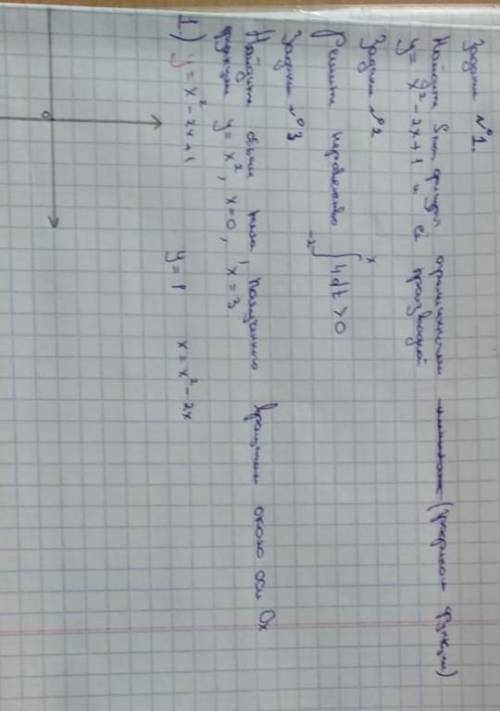 Задача №1.
Найдите S пл. фигуры ограниченной (графиком функции)
y = x² - 2x + 1 и её производной
Задача №2
Решите неравенство ₋₂∫ˣ 4dt > 0
Задача №3
Найдите объём тела, полученного вращением около оси Ox
функции y = x², x = 0, x = 3
1) y = x² - 2x + 1 y = 1 x = x² - 2x
0